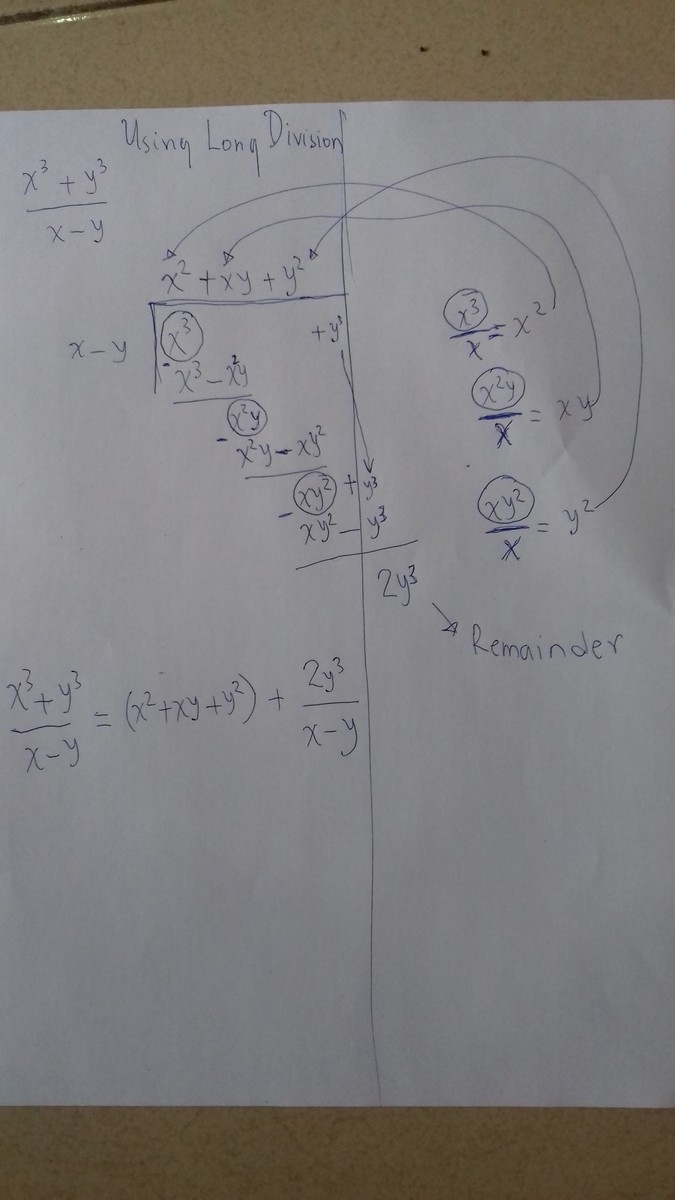 Using Long Division
x³ + y³
x - y
x² + xy + y²
x - y
x³ + y³
- x³ - x²y
x²y
- x²y - xy²
xy² + y³
- xy² - y³
2y³
Remainder
x³/x = x²
x²y/x = xy
xy²/x = y²
x³ + y³/x - y = (x² + xy + y²) + 2y³/x - y